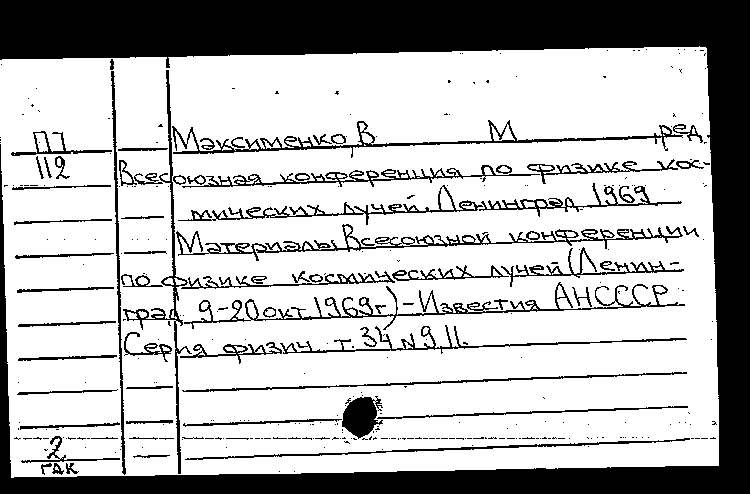 П7 Максименко, В М ,ред.
112 Всесоюзная конференция по физике кос-
мических лучей. Ленинград 1969
Материалы Всесоюзной конференции
по физике космических лучей (Ленин-
град, 9-20 окт. 1969г.) - Известия АНСССР.
Серия физич. т. 34 N 9, 11.
2
ГАК